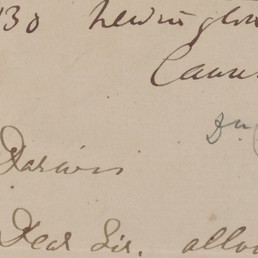 130 Newington
Cause
Dr
Darwin
Dear Sir. allow